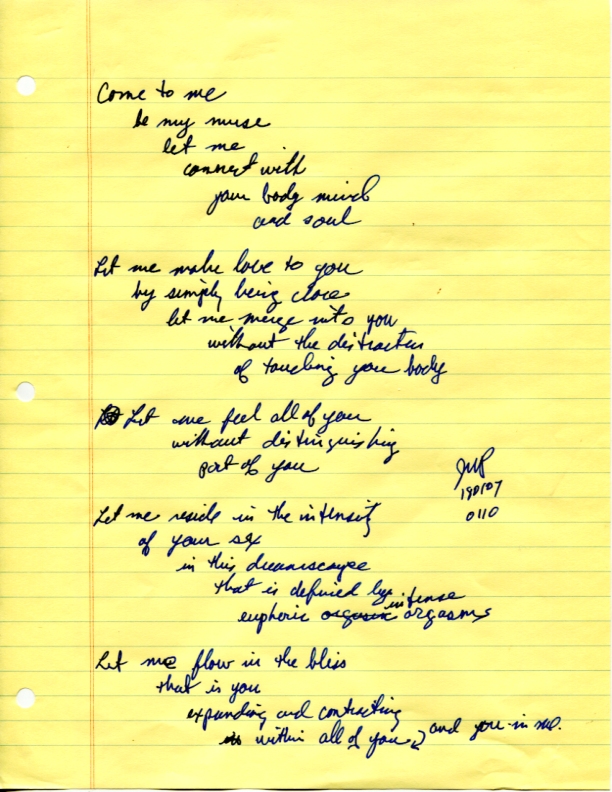 Come to me
be my muse
let me
connect with
your body mind
and soul
Let me make love to you
by simply being close
let me merge into you
without the distraction
of touching your body
Let me feel all of you
without distinguishing
part of you
JMP
190107
0110
Let me reside in the intensity
of your sex
in this dreamscape
that is defined by intense
euphoric orgasms
Let me flow in the bliss
that is you
expanding and contracting
within all of you and you in me.